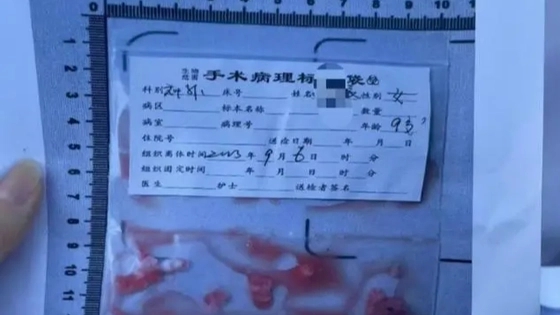 0 1 2 3 4 5 6 7 8 9 10
生物危害 手术病理标 袋
科别 床号 姓名 性别 女
病区 标本名称 数量
病室 病理号 年龄 93岁
住院号 送检日期 年 月 日
组织离体时间 2023年 9月 6日 时 分
组织固定时间 年 月 日 时 分
医生 护士 送检者签名
1
2
3
4
5
6
7
8
9
10
11